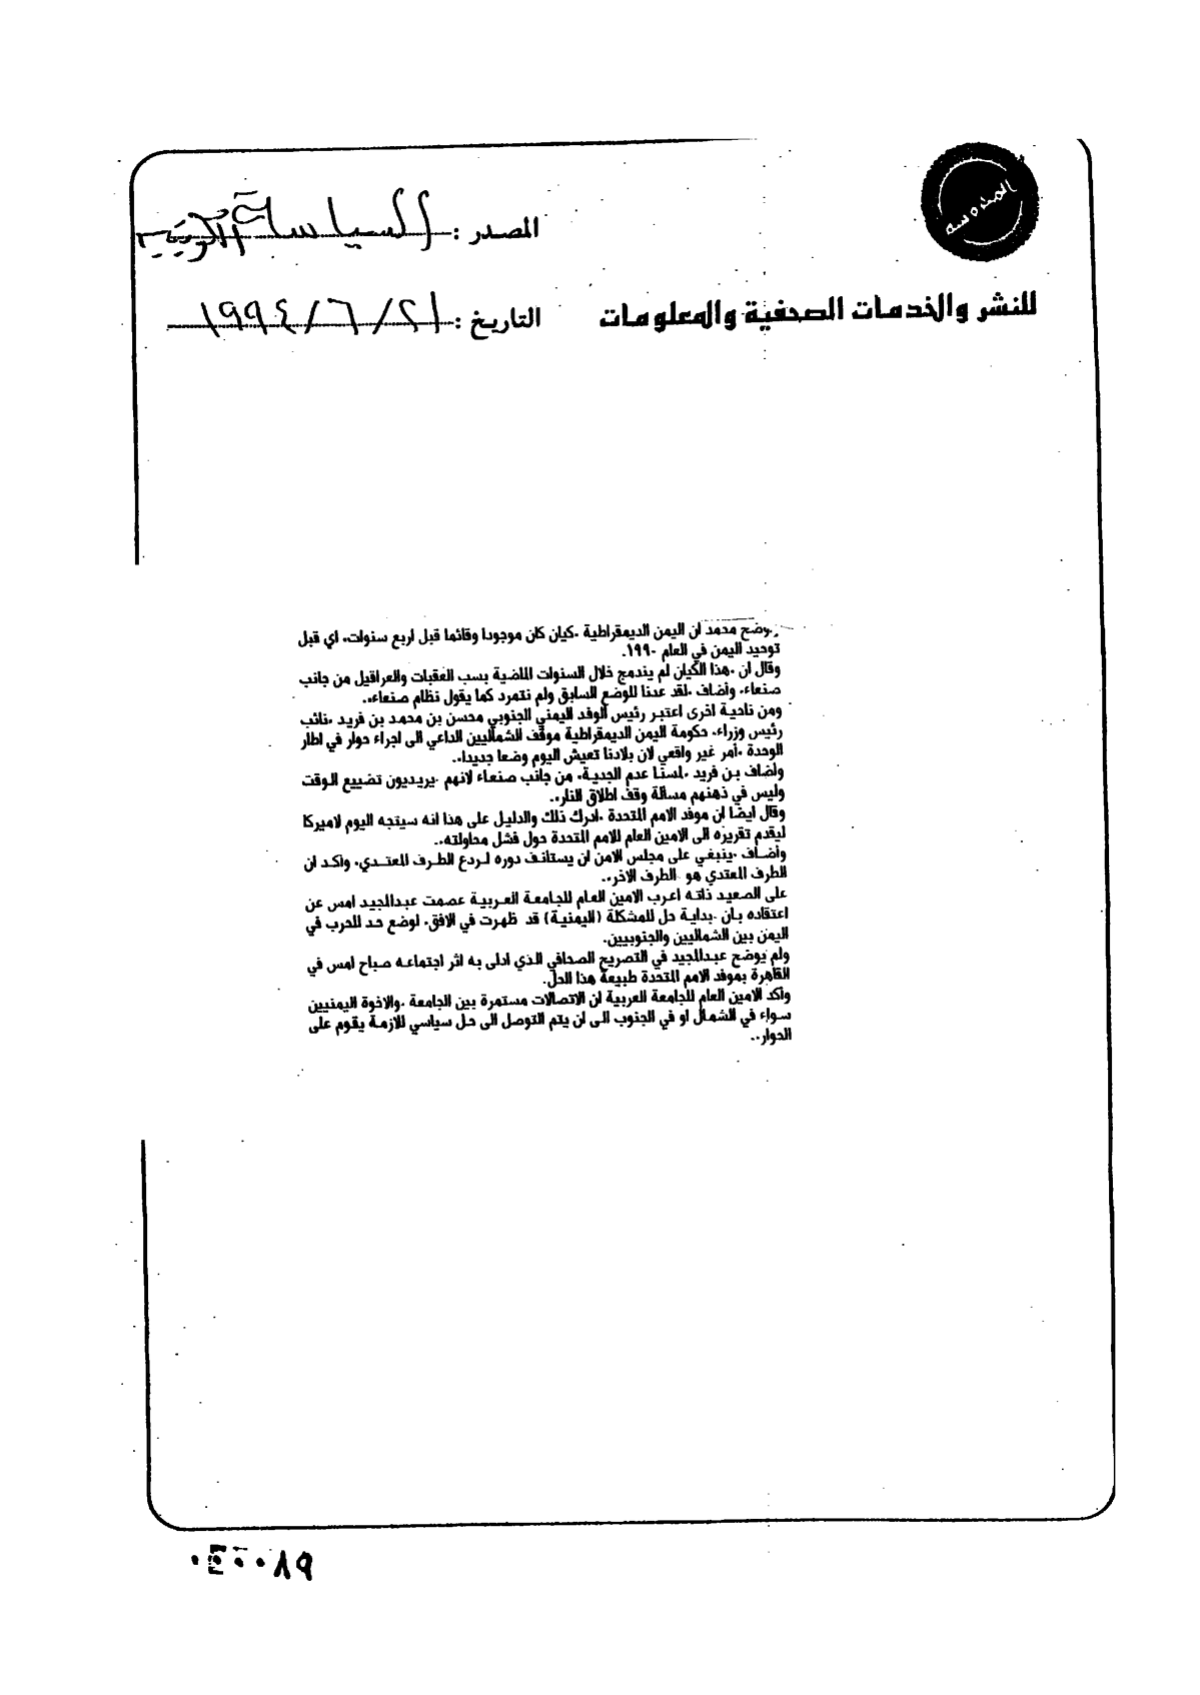 المصدر : السياسة الكويتية
للنشر والخدمات الصحفية والمعلومات
التاريخ : ٢١/٦/١٩٩٤
وضح محمد ان اليمن الديمقراطية «كيان كان موجودا وقائما قبل اربع سنوات» اي قبل
توحيد اليمن في العام ١٩٩٠.
وقال ان «هذا الكيان لم يندمج خلال السنوات الماضية بسب العقبات والعراقيل من جانب
صنعاء» واضاف «لقد عدنا للوضع السابق ولم نتمرد كما يقول نظام صنعاء».
ومن ناحية اخرى اعتبر رئيس الوفد اليمني الجنوبي محسن بن محمد بن فريد «نائب
رئيس وزراء» حكومة اليمن الديمقراطية موقف الشماليين الداعي الى اجراء حوار في اطار
الوحدة «أمر غير واقعي لان بلادنا تعيش اليوم وضعا جديدا».
واضاف بن فريد «لمسنا عدم الجدية» من جانب صنعاء لانهم «يريديون تضييع الوقت
وليس في ذهنهم مسألة وقف اطلاق النار».
وقال ايضا ان موفد الامم المتحدة «ادرك ذلك والدليل على هذا انه سيتجه اليوم لاميركا
ليقدم تقريره الى الامين العام للامم المتحدة حول فشل محاولته».
وأضاف «ينبغي على مجلس الامن ان يستانف دوره لردع الطرف المعتدي» واكد ان
الطرف المعتدي هو «الطرف الاخر».
على الصعيد ذاته اعرب الامين العام للجامعة العربية عصمت عبدالمجيد امس عن
اعتقاده بان «بداية حل للمشكلة (اليمنية) قد ظهرت في الافق» لوضع حد للحرب في
اليمن بين الشماليين والجنوبيين.
ولم يوضح عبدالمجيد في التصريح الصحافي الذي ادلى به اثر اجتماعه صباح امس في
القاهرة بموفد الامم المتحدة طبيعة هذا الحل.
وأكد الامين العام للجامعة العربية ان الاتصالات مستمرة بين الجامعة «والاخوة اليمنيين
سواء في الشمال او في الجنوب الى ان يتم التوصل الى حل سياسي للازمة يقوم على
الحوار».